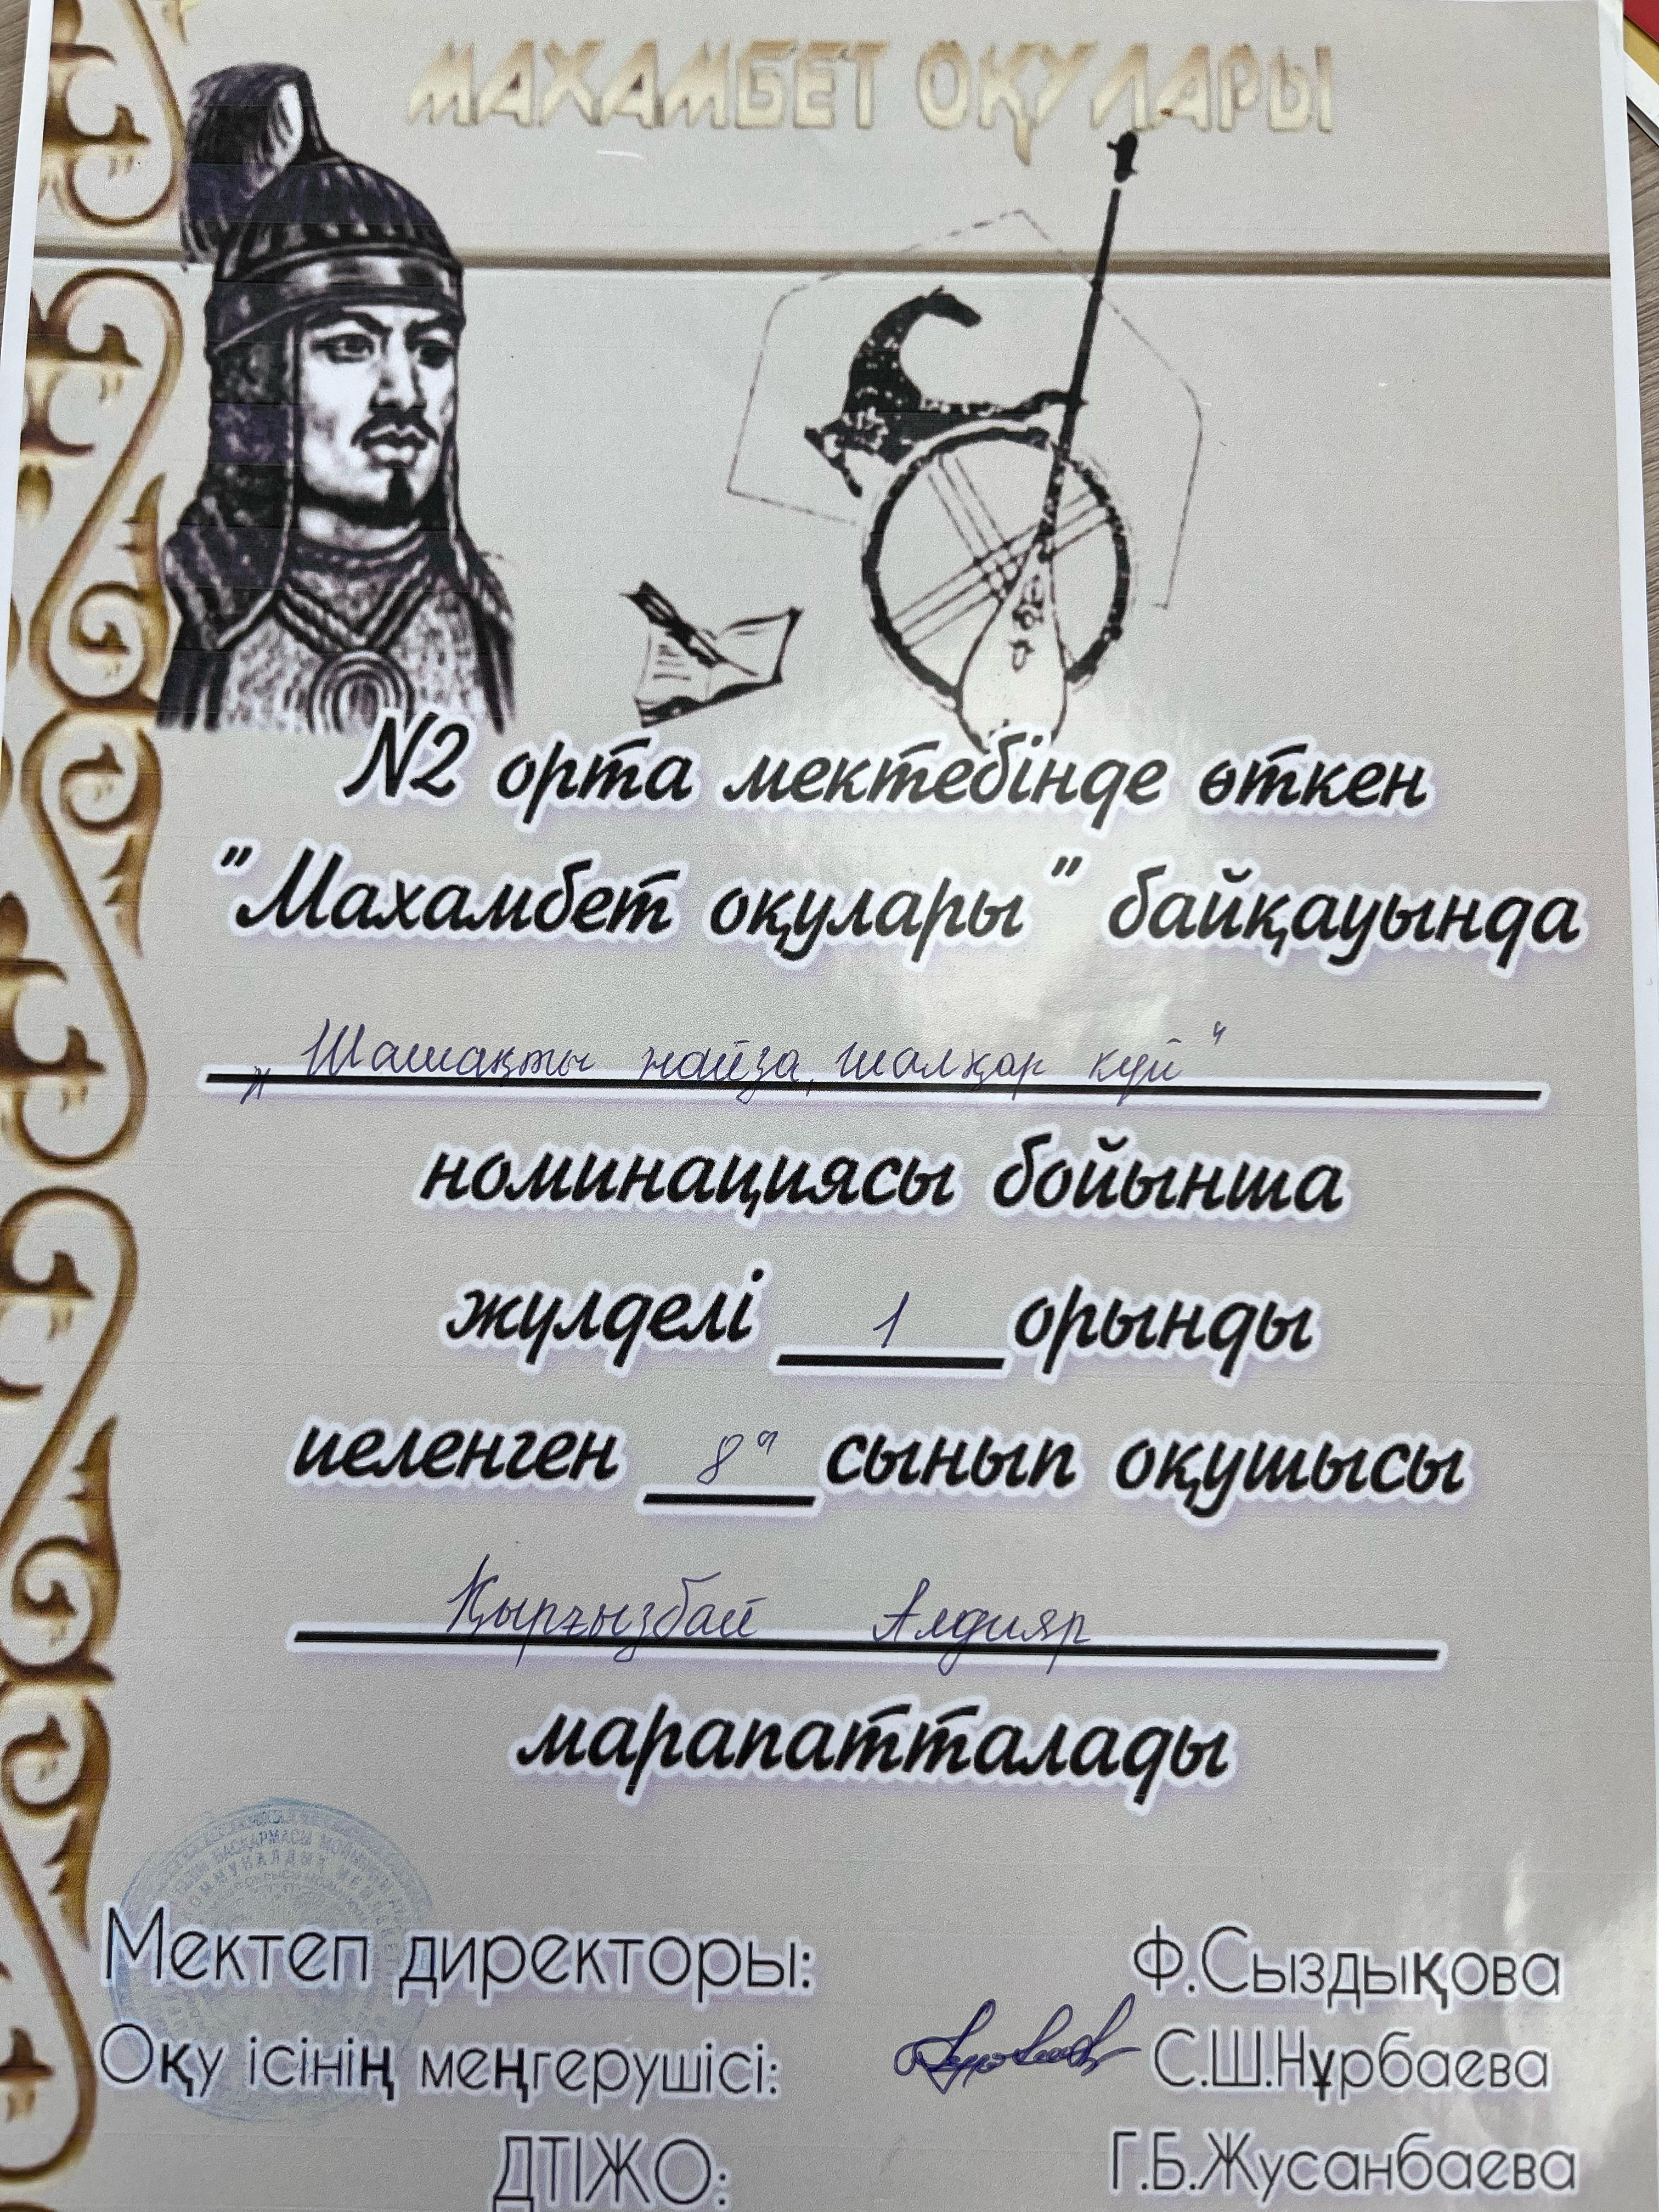 МАХАМБЕТ ОҚУЛАРЫ
N2 орта мектебінде өткен
"Махамбет оқулары" байқауында
„Шашақты найза, шалқар күй"
номинациясы бойынша
жүлделі 1 орынды
иеленген 8"а" сынып оқушысы
Қырғызбай Алдияр
марапатталады
БАСҚАРМАСЫ МОЙЫНҚҰМ
КОММУНАЛДЫҚ МЕМЛЕКЕТ
Мектеп директоры: Ф.Сыздықова
Оқу ісінің меңгерушісі: С.Ш.Нұрбаева
ДТІЖО: Г.Б.Жусанбаева